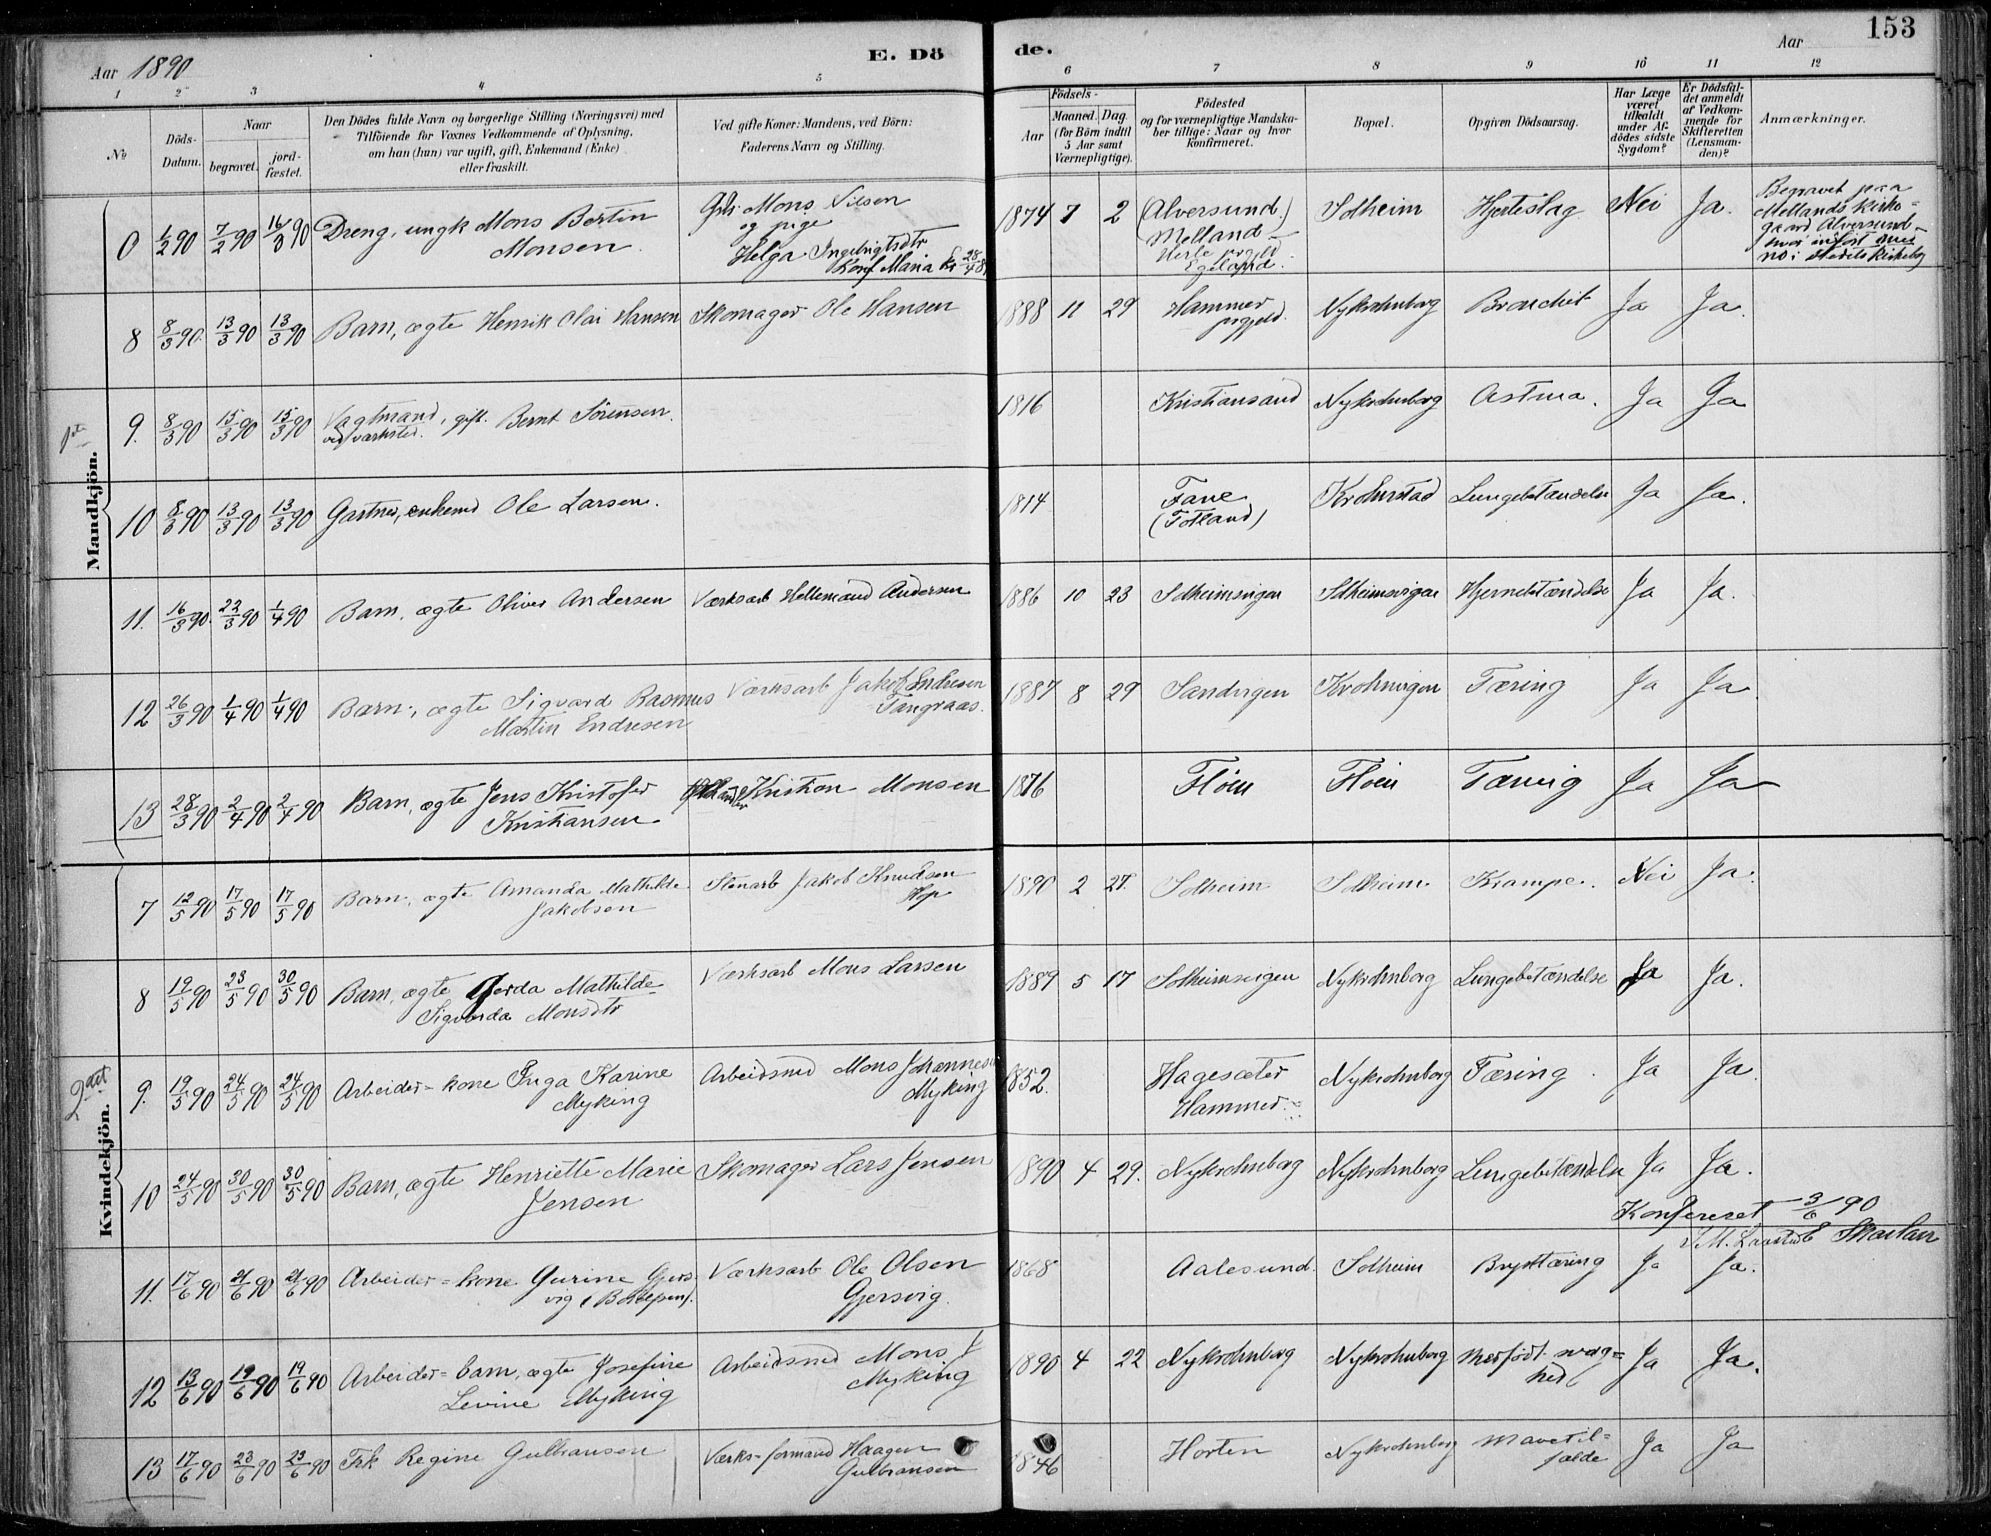 153
Aar 1890
E. Dö
de.
Aar
1 2 3 4 5
6 7 8 9 10 11 12
No
Döds-
Datum.
Naar
begravet.
jord-
fæstet.
Den Dödes fulde Navn og borgerlige Stilling (Næringsvei) med
Tilföiende for Voxnes Vedkommende af Oplysning,
om han (hun) var ugift, gift, Enkemand (Enke)
eller fraskilt.
Ved gifte Koner: Mandens, ved Börn:
Faderens Navn og Stilling.
Aar
Födsels-
Maaned. Dag.
(for Börn indtil
5 Aar samt
Værnepligtige).
Födested
og for værnepligtige Mandska-
ber tillige: Naar og hvor
konfirmeret.
Bopæl.
Opgiven Dödsaarsag.
Har Læge
været
tilkaldt
under Af-
dödes sidste
Sygdom?
Er Dödsfal-
det anmeldt
af Vedkom-
mende for
Skifteretten
(Lensman-
den)?
Anmærkninger.
Mandkjön.
0 1/2 90 7/2 90 16/3 90 Dreng, ungk Mons Bertin
Monsen
Mons Nilsen
og pige
Helga Ingebrigtsdtr
Konf Maria K 28/4 8
1874 7 2 (Alversund.)
Melland
Herlø prgjeld
Egeland.
Solheim Hjerteslag Nei Ja.
Begravet paa
Mellands Kirke-
gaard Alversund
hvor indført
no i Stedets Kirkebog
8 8/3 90. 13/3 90 13/3 90 Barn, ægte Henrik Olai Hansen Skomager Ole Hansen 1888 11 29 Hammer
prgjeld. Nykrohnborg Bronchit Ja Ja.
9. 8/3 90 15/3 90 15/3 90 Vagtmand, gift. Bernt Sörensen.
ved værksted.
1816 Kristiansand Nykrohnborg Astma. Ja Ja
10 8/3 90 13/3 90 13/3 90 Gartner, enkemd Ole Larsen.
1814 Fane
(Totland)
Krohnstad Lungebetændelse Ja Ja.
11. 16/3 90. 22/3 90 1/4 90 Barn, ægte Oliver Andersen Værksarb Hellemand Andersen 1886 10 23 Solheimsvigen Solheimsvigen Hjernebetændelse Ja Ja.
12 26/3 90 1/4 90 1/4 90 Barn, ægte Sigvard Rasmus
Martin Endresen
Værksarb Jakob Endresen
Tangraas.
1887 8 29 Sandvigen Krohnvigen Tæring Ja Ja.
13 28/3 90 2/4 90 2/4 90 Barn, ægte Jens Kristofer
Kristiansen.
Kristian Monsen 1876 Fløen Fløen Tæring Ja Ja
Kvindekjön.
7 12/5 90 17/5 90 17/5 90 Barn, ægte Amanda Mathilde
Jakobsen
Stenarb Jakob Knudsen
Hop
1890 2 27. Solheim Solheim Krampe. Nei Ja.
8 19/5 90 23/5 90 30/5 90 Barn, ægte Gerda Mathilde
Sigvarda Monsdtr
Værksarb Mons Larsen 1889 5 17 Solheimsvigen Nykrohnborg Lungebetændelse Ja Ja.
9. 19/5 90 24/5 90 24/5 90 Arbeider-kone Inga Karine
Myking
Arbeidsmd Mons Johannesen
Myking
1852. Hagesæter
Hammer.
Nykrohnborg Tæring. Ja Ja.
10 24/5 90 30/5 90 30/5 90 Barn, ægte Henriette Marie
Jensen
Skomager Lars Jensen 1890 4 29. Nykrohnborg Nykrohnborg Lungebetændelse Ja Ja.
Konfereret 3/6 90
11. 17/6 90 21/6 90 21/6 90 Arbeider-kone Gurine Gjers-
vig
Værksarb Ole Olsen
Gjersvig.
1868 Aalesund. Solheim Brysttæring Ja Ja.
12 13/6 90 19/6 90 19/6 90 Arbeider-barn, ægte Josefine
Levine Myking
Arbeidsmd Mons J
Myking
1890 4 22 Nykrohnborg Nykrohnborg Medfödt svag=
hed
Ja Ja.
13 17/6 90 23/6 90 23/6 90 Frk Regine Gulbransen Værks-formand Haagen
Gulbransen
1846 Horten Nykrohnborg Mavetil=
fælde
Ja Ja